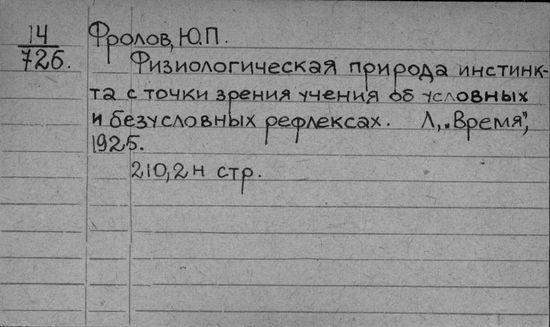 14
726.
Фролов, Ю.П.
Физиологическая природа инстинк-
та с точки зрения учения об условных
и безусловных рефлексах. Л, „Время”,
1925.
210,2н стр.